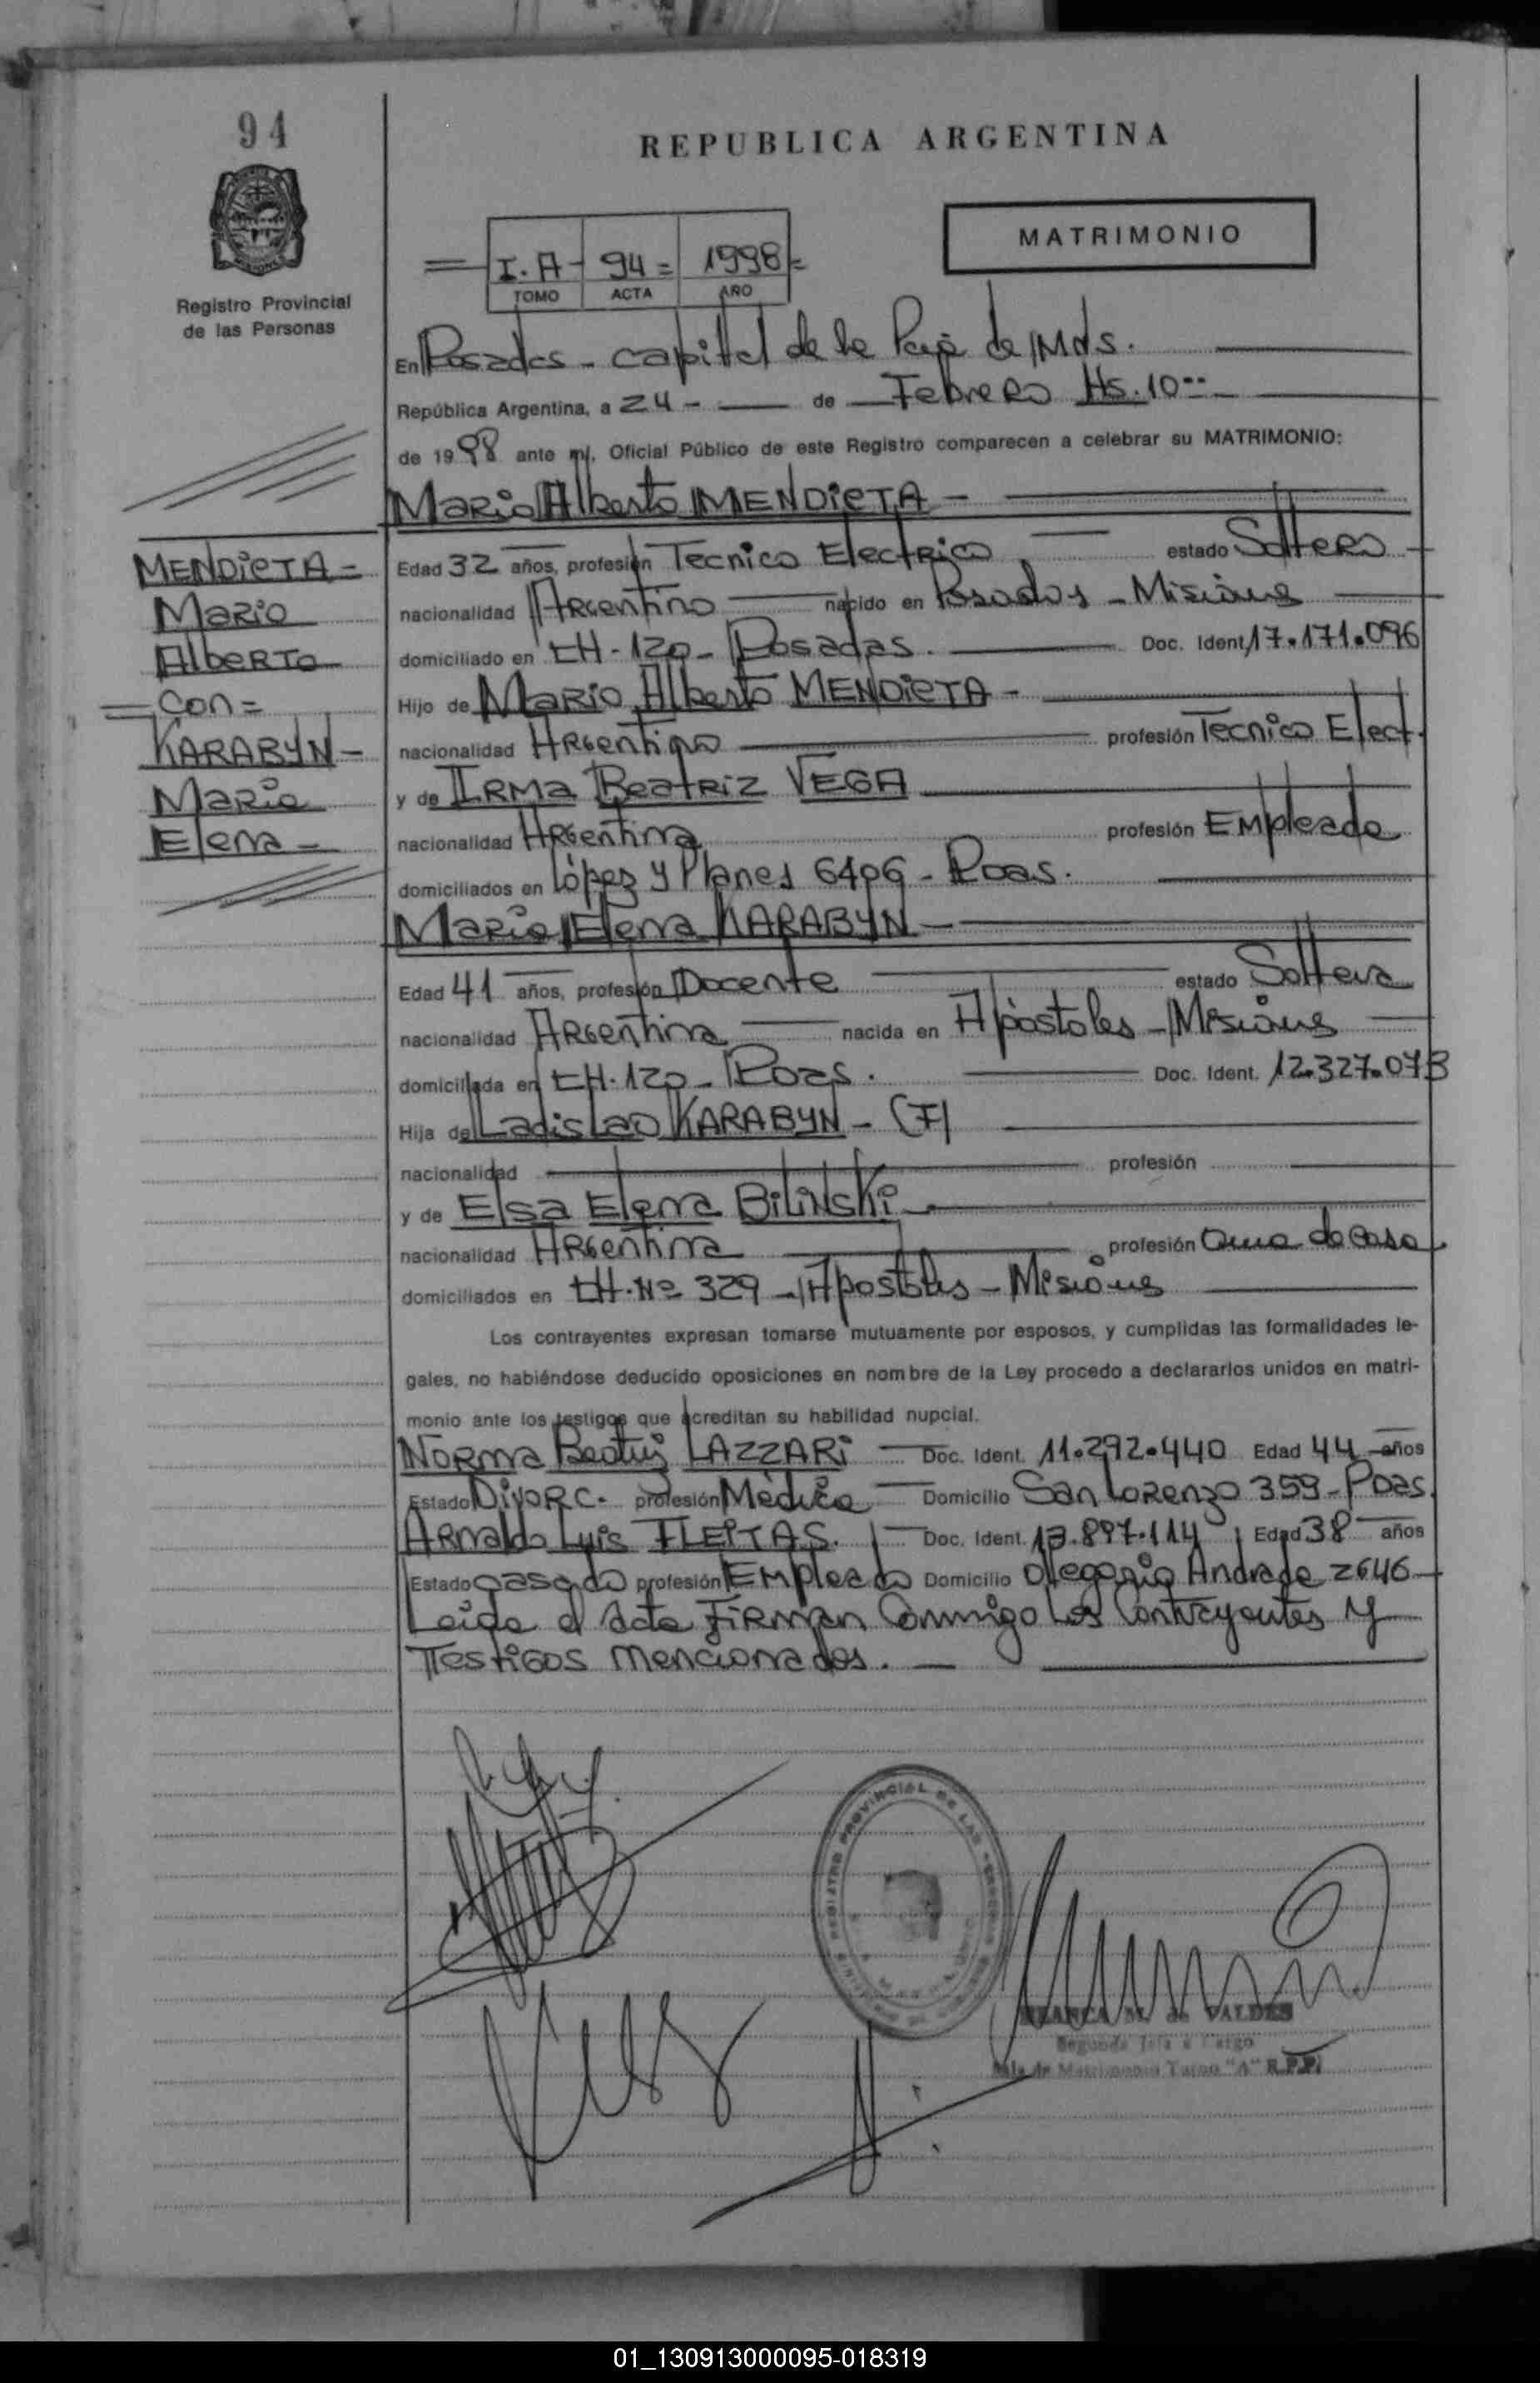 94
REPUBLICA ARGENTINA
MATRIMONIO
I.A - 94 = 1998 =
TOMO ACTA AÑO
Registro Provincial
de las Personas
En Posadas - capital de la Pcia de Mnes.
República Argentina, a 24 - de Febrero Hs. 10
de 1998 ante mí, Oficial Público de este Registro comparecen a celebrar su MATRIMONIO:
Mario Alberto MENDIETA -
MENDIETA =
Mario
Alberto
= con =
KARABYN -
Maria
Elena -
Edad 32 años, profesión Tecnico Electrico estado Soltero
nacionalidad Argentino nacido en Posadas - Misiones
domiciliado en CH - 120 - Posadas. Doc. Ident. 17.171.096
Hijo de Mario Alberto MENDIETA -
nacionalidad Argentino profesión Tecnico Elect.
y de IRMA Beatriz VEGA
nacionalidad Argentina profesión Empleada
domiciliados en López y Planes 6406 - Pdas.
Maria Elena KARABYN -
Edad 41 años, profesión Docente estado Soltera
nacionalidad Argentina nacida en Apóstoles - Misiones
domiciliada en CH. 120 - Pdas. Doc. Ident. 12.327.073
Hija de Ladislao KARABYN - (F)
nacionalidad profesión
y de Elsa Elena Bilinski -
nacionalidad Argentina profesión Ama de Casa
domiciliados en CH. Nº 329 - Apostoles - Misiones
Los contrayentes expresan tomarse mutuamente por esposos, y cumplidas las formalidades le-
gales, no habiéndose deducido oposiciones en nombre de la Ley procedo a declararlos unidos en matri-
monio ante los testigos que acreditan su habilidad nupcial.
Norma Beatriz LAZZARI Doc. Ident. 11.292.440 Edad 44 años
Estado Divorc. profesión Médica Domicilio San Lorenzo 359 - Pdas.
Arnaldo Luis FLEITAS. Doc. Ident. 13.897.114 Edad 38 años
Estado casado profesión Empleado Domicilio Olegario Andrade 2646
Leida el acta Firman Conmigo los Contrayentes y
Testigos mencionados.
REGISTRO PROVINCIAL DE LAS PERSONAS
BLANCA M. de VALDES
Segunda Jefa a Cargo
Sala de Matrimonio Turno "A" R.P.P.
01_130913000095-018319